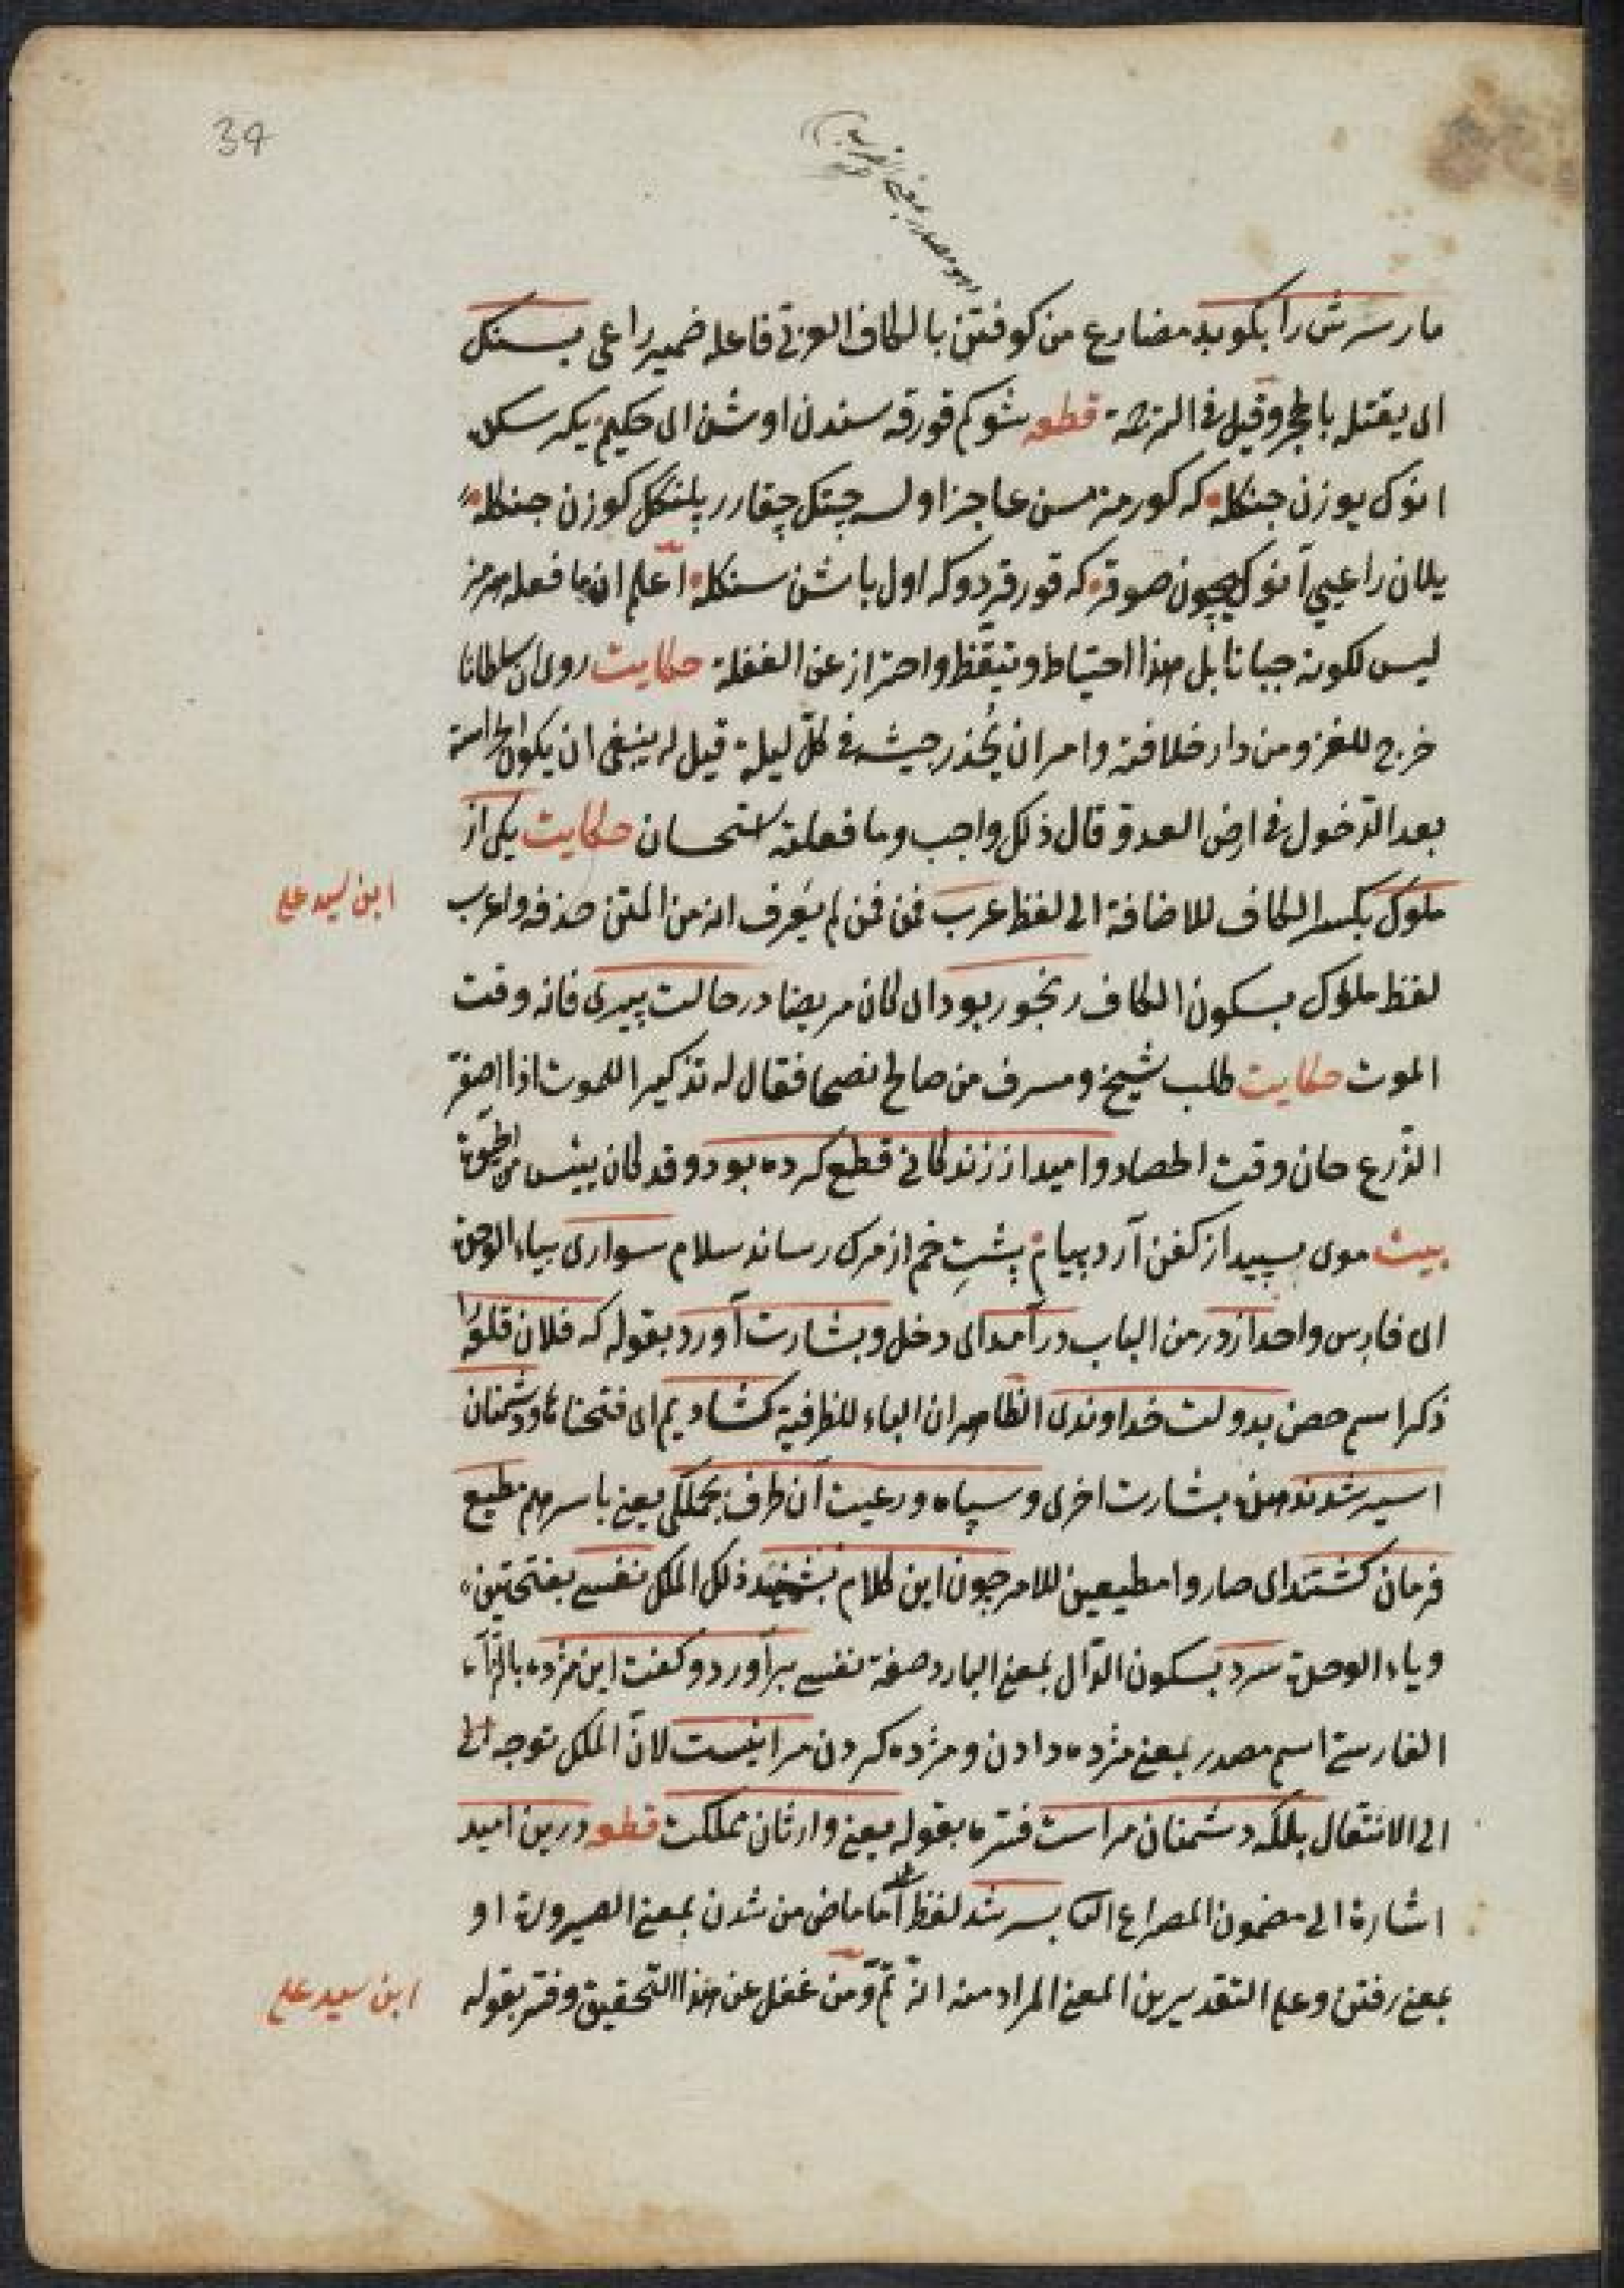 34
وهو مصدر بمعنى
مار سرش را بكوبد مضارع من كوفتن بالكاف العربى فاعله ضمير راعى بسنك
اى يقتله بالحجر وقيل فى الترجمة قطعه شوكم قورقه سندن اوشن اى حكيم يكرسك
انوك يوزن جنكله كه كورمزمسن عاجز اولسه جتك چقارر پلنكك كوزن جنكله
يلان راعيى آنوكيچون صوقر كه قورقردوكه اول باشن سنكله اعلم ان ما فعله هرمز
ليس لكونه جبانا بل هذا احتياط وتيقظ واحتراز عن الغفلة حكايت روى ان سلطانا
خرج للغزو من دار خلافته وامر ان يحذر جيشه فى كل ليلة قيل له ينبغى ان يكون الحراسة
بعد الدخول فى ارض العدو قال ذلك واجب وما فعلته استحسان حكايت يكى از
ملوك بكسر الكاف للاضافة الى لفظ عرب فمن لم يعرف انه من المتن حذفه واعرب
ابن سيد على
لفظ ملوك بسكون الكاف رنجور بود اى كان مريضا در حالت پيرى فانه وقت
الموت حكايت طلب شيخ ومسرف من صالح نصحا فقال له تذكيرا للموت اذا اصفر
الزرع حان وقت الحصاد واميد از زندكانى قطع كرده بود وقد كان يئس من الحيوة
بيت موى سپيد از كفن آرد پيام پشت خم از مرك رساند سلام سوارى بياء الوحدة
اى فارس واحد از در من الباب درآمد اى دخل وبشارت آورد بقوله كه فلان قلعه را
ذكر اسم حصن بدولت خداوندى الظاهر ان الباء للظرفية كشاديم اى فتحناها ودشمنان
اسير شدند هذه بشارت اخرى وسپاه ورعيت آن طرف بجملكى يعنى باسرهم مطيع
فرمان كشتند اى صاروا مطيعين للامر چون اين كلام بشنيد ذلك الملك نفسى بفتحتين
وياء الوحدة سرد بسكون الدال بمعنى البارد صفة نفسى برآورد وكفت اين مژده بالزاء
الفارسى اسم مصدر بمعنى مژده دادن ومژده كردن مرا نيست لان الملك توجه الى
الى الانتقال بلكه دشمنان مراست فسره بقوله يعنى وارثان مملكت قطعه درين اميد
اشارة الى مضمون المصراع الثانى بسر شد لفظ شد اما ماض من شدن بمعنى الصيرورة او
بمعنى رفتن وعلى التقديرين المعنى المراد منه انه تم ومن غفل عن هذا التحقيق وفسر بقوله
ابن سيد على